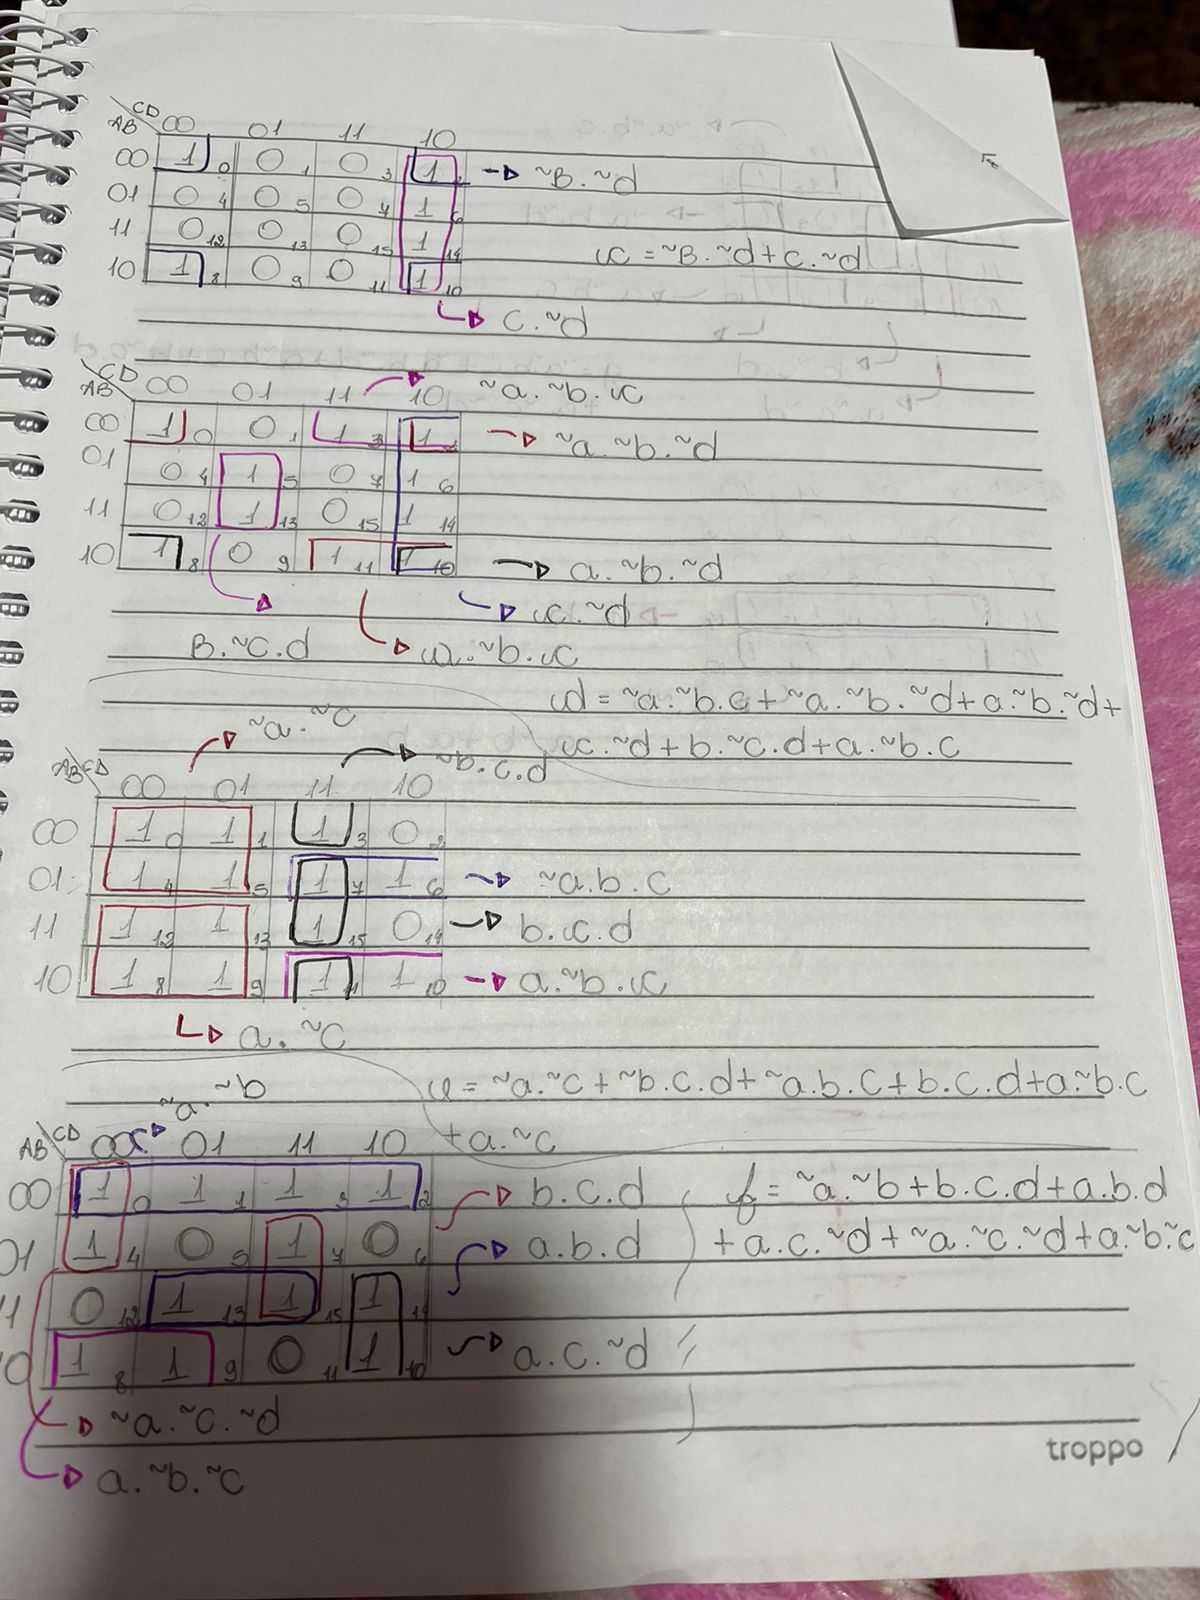 CD
AB 00 01 11 10
00 1 0 0 1 0 3 1 2 → ~B.~d
01 0 4 0 5 0 7 1 6
11 0 12 0 13 0 15 1 14 c = ~B.~d+c.~d
10 1 8 0 9 0 11 1 10
→ c.~d
CD
AB 00 01 11 10 → ~a.~b.c
00 1 0 0 1 1 3 1 2 → ~a.~b.~d
01 0 4 1 5 0 7 1 6
11 0 12 1 13 0 15 1 14
10 1 8 0 9 1 11 1 10 → a.~b.~d
→ c.~d
B.~c.d → a.~b.c
d = ~a.~b.c+~a.~b.~d+a.~b.~d+
c.~d+b.~c.d+a.~b.c
→ ~a.~c → ~b.c.d
AB CD 00 01 11 10
00 1 0 1 1 1 3 0 2
01 1 4 1 5 1 7 1 6 → ~a.b.c
11 1 12 1 13 1 15 0 14 → b.c.d
10 1 8 1 9 1 11 1 10 → a.~b.c
→ a.~c
e = ~a.~c+~b.c.d+~a.b.c+b.c.d+a.~b.c
+a.~c
~a.~b
AB CD 00 01 11 10
00 1 0 1 1 1 3 1 2 → b.c.d
01 1 4 0 5 1 7 0 6 → a.b.d
11 0 12 1 13 1 15 1 14
10 1 8 1 9 0 11 1 10 → a.c.~d
f = ~a.~b+b.c.d+a.b.d
+a.c.~d+~a.~c.~d+a.~b.~c
→ ~a.~c.~d
→ a.~b.~c
troppo